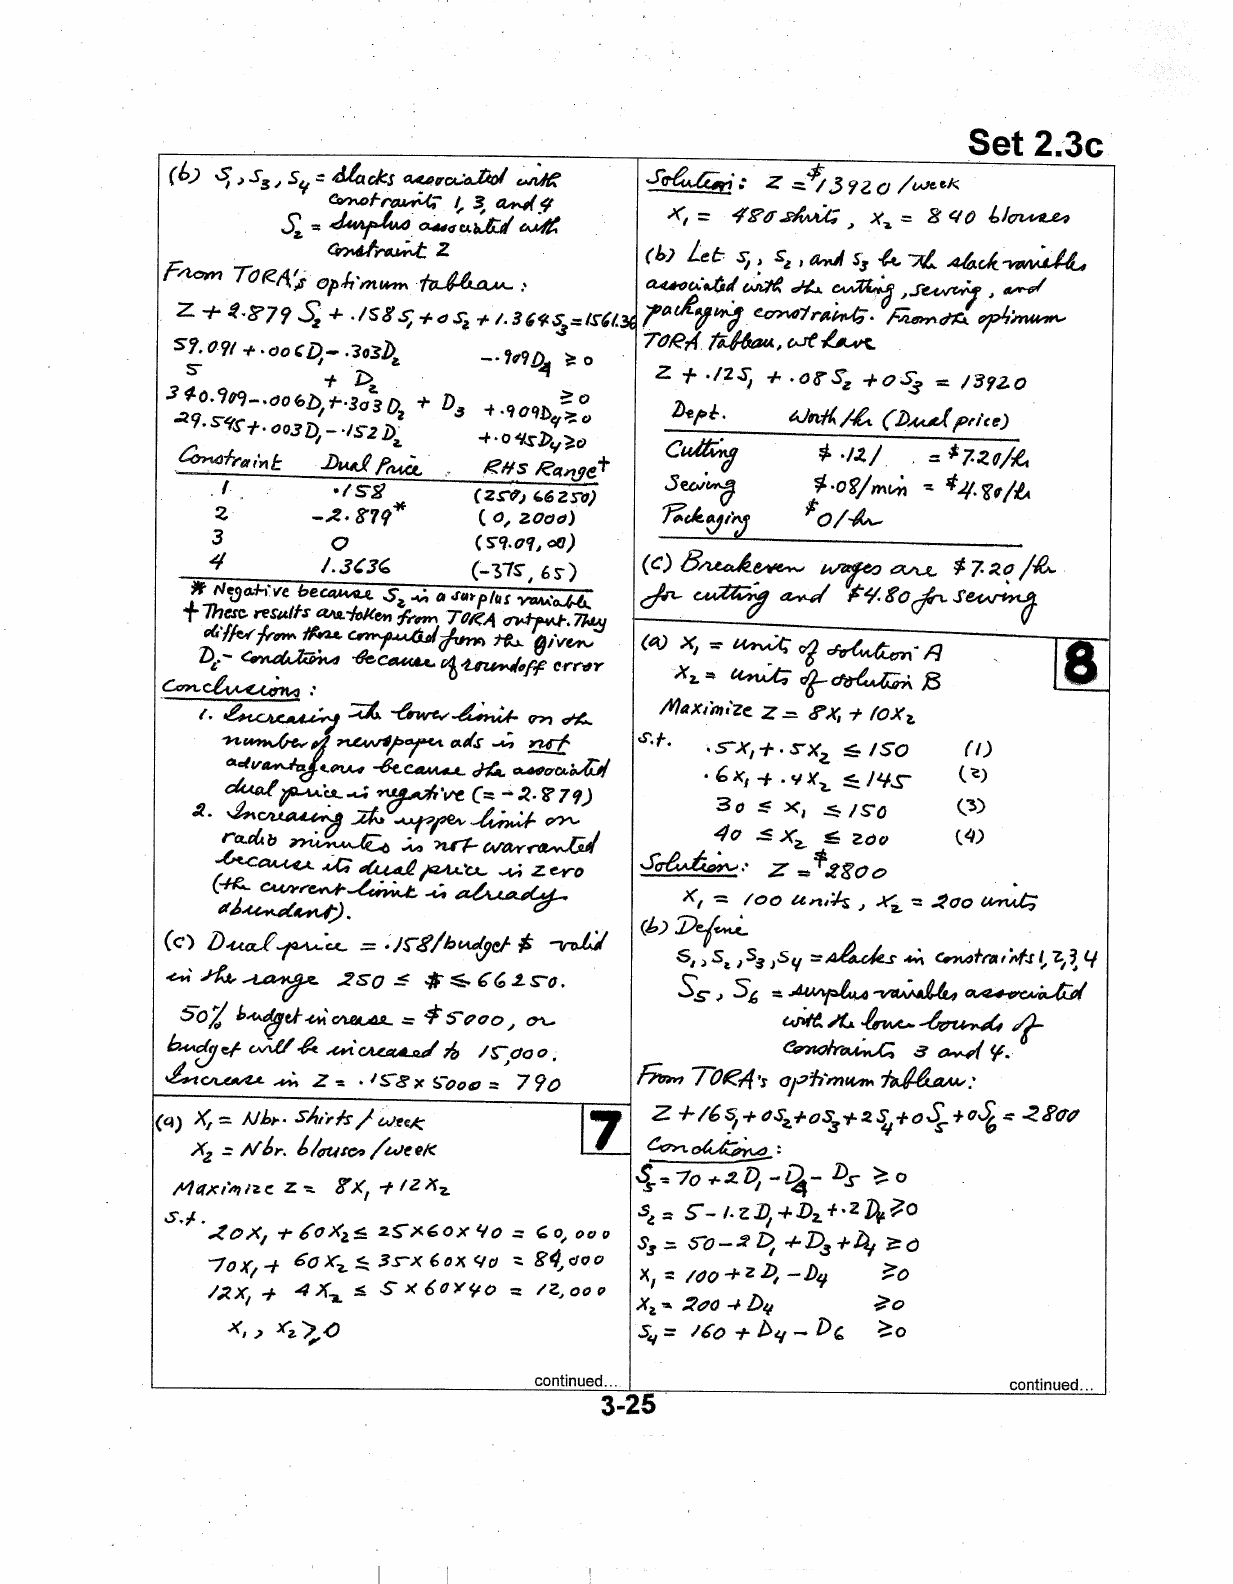 Set 2.3c
(b) S₁, S₃, S₄ = slacks associated with
constraints 1, 3, and 4
S₂ = surplus associated with
constraint 2
From TORA's optimum tableau :
Z + 2.879 S₂ + .158 S₁ + 0 S₂ + 1.364 S₃ = 1561.36
59.091 + .006 D₁ - .303 D₂ - .909 D₄ ≥ 0
5 + D₂ ≥ 0
340.909 - .006 D₁ + .303 D₂ + D₃ + .909 D₄ ≥ 0
29.545 + .003 D₁ - .152 D₂ + .045 D₄ ≥ 0
Constraint Dual Price RHS Range†
1 .158 (250, 66250)
2 -2.879* (0, 2000)
3 0 (59.09, ∞)
4 1.3636 (-375, 65)
* Negative because S₂ is a surplus variable
† These results are taken from TORA output. They
differ from those computed from the given
Dᵢ- conditions because of roundoff error
Conclusions :
1. Increasing the lower limit on the
number of newspaper ads is not
advantageous because the associated
dual price is negative (= -2.879)
2. Increasing the upper limit on
radio minutes is not warranted
because its dual price is zero
(the current limit is already
abundant).
(c) Dual price = .158/budget $ valid
in the range 250 ≤ $ ≤ 66250.
50% budget increase = $5000, or
budget will be increased to 15,000.
Increase in Z = .158 x 5000 = 790
7
(a) X₁ = Nbr. shirts / week
X₂ = Nbr. blouses / week
Maximize Z = 8X₁ + 12X₂
s.t.
20X₁ + 60X₂ ≤ 25x60x40 = 60,000
70X₁ + 60X₂ ≤ 35x60x40 = 84,000
12X₁ + 4X₂ ≤ 5x60x40 = 12,000
X₁, X₂ ≥ 0
continued...
Solution: Z = $13920/week
X₁ = 480 shirts, X₂ = 840 blouses
(b) Let S₁, S₂, and S₃ be the slack variables
associated with the cutting, sewing, and
packaging constraints. From the optimum
TORA tableau, we have
Z + .12S₁ + .08S₂ + 0S₃ = 13920
Dept. Worth/hr (Dual price)
Cutting $.12/ = $7.20/hr
Sewing $.08/min = $4.80/hr
Packaging $0/hr
(c) Breakeven wages are $7.20/hr
for cutting and $4.80 for sewing
8
(a) X₁ = units of solution A
X₂ = units of solution B
Maximize Z = 8X₁ + 10X₂
s.t. .5X₁ + .5X₂ ≤ 150 (1)
.6X₁ + .4X₂ ≤ 145 (2)
30 ≤ X₁ ≤ 150 (3)
40 ≤ X₂ ≤ 200 (4)
Solution: Z = $2800
X₁ = 100 units, X₂ = 200 units
(b) Define
S₁, S₂, S₃, S₄ = slacks in constraints 1, 2, 3, 4
S₅, S₆ = surplus variables associated
with the lower bounds of
constraints 3 and 4.
From TORA's optimum tableau:
Z + 16S₁ + 0S₂ + 0S₃ + 2S₄ + 0S₅ + 0S₆ = 2800
Conditions:
S₅ = 70 + 2D₁ - D₄ - D₅ ≥ 0
S₂ = 5 - 1.2D₁ + D₂ + .2D₄ ≥ 0
S₃ = 50 - 2D₁ + D₃ + D₄ ≥ 0
X₁ = 100 + 2D₁ - D₄ ≥ 0
X₂ = 200 + D₄ ≥ 0
S₄ = 160 + D₄ - D₆ ≥ 0
continued...
3-25